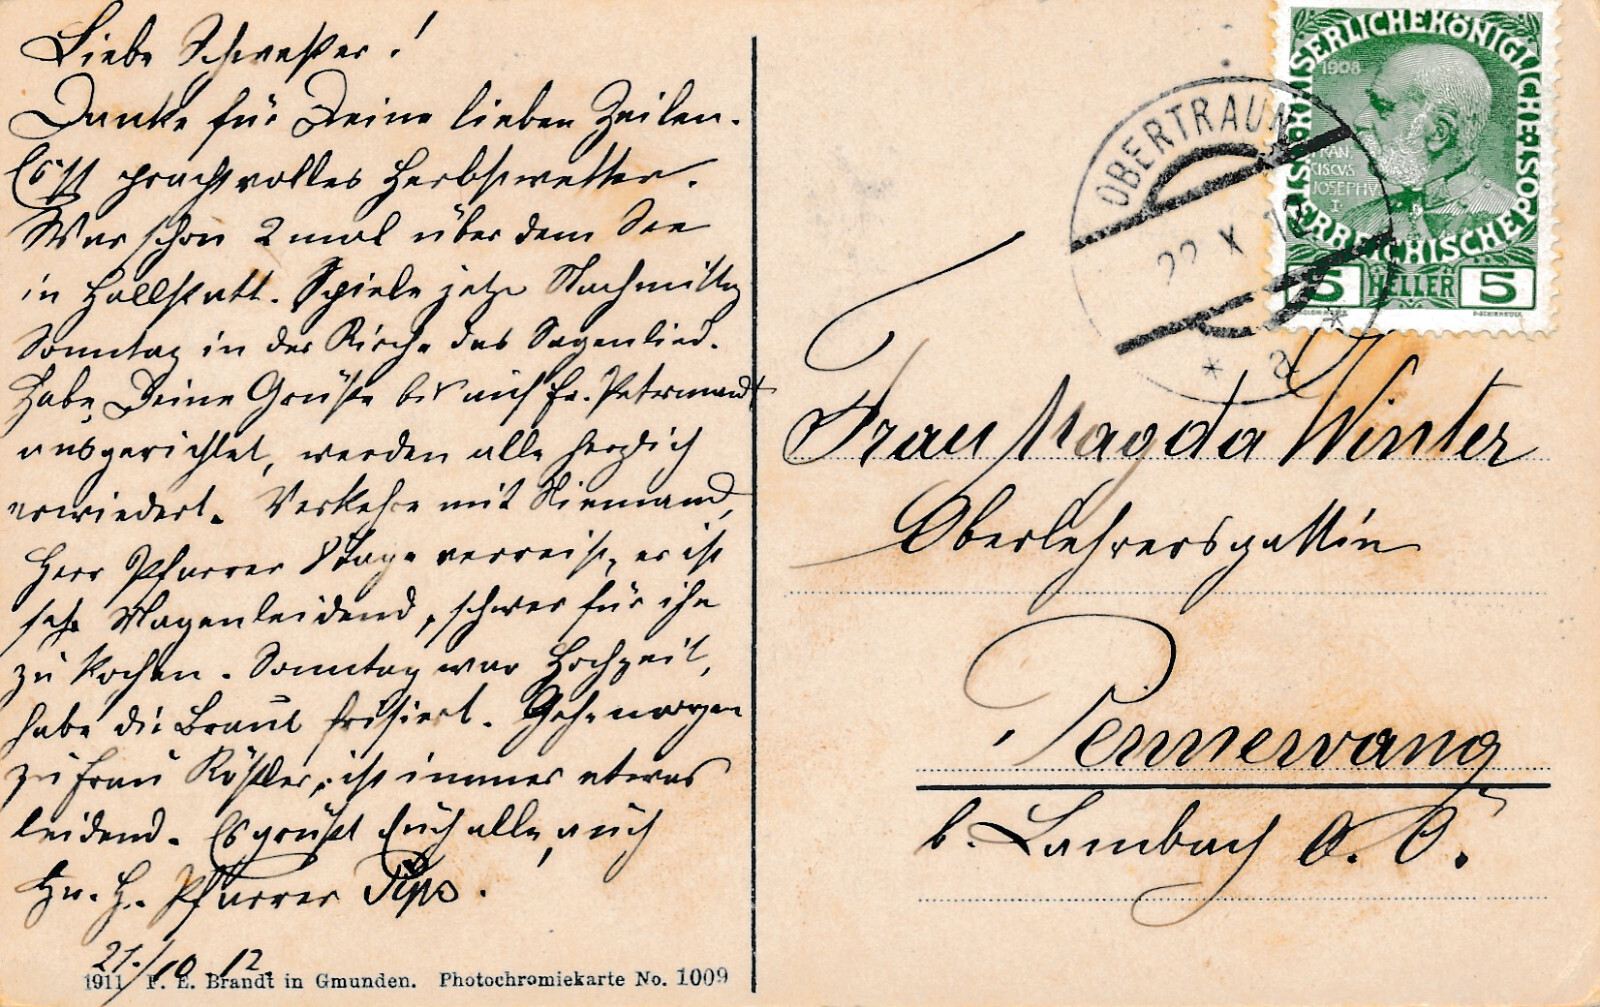 Liebe Schwester!
Danke für Deine lieben Zeilen.
Es ist prachtvolles Herbstwetter.
War schon 2 mal über dem See
in Hallstatt. Spiele jetzt Nachmittag
Sonntag in der Kirche das Segenlied.
Habe Deine Grüße bei auch Fr. Petermandl
ausgerichtet, werden alle herzlich
erwiedert. Verkehre mit Niemand,
Herr Pfarrer 8 Tage verreist, er ist
sehr Magenleidend, schwer für ihn
zu kochen. Sonntag war Hochzeit,
habe die Braut frisiert. Gehe morgen
zu Frau Rößler, ist immer etwas
leidend. Es grüßt Euch alle, auch
Hr. H. Pfarrer Pipo.
21./10.12.
1911 F. E. Brandt in Gmunden. Photochromiekarte No. 1009
KAISERLICHEKÖNIGLICHE ÖSTERREICHISCHE POST
1908
FRAN
CISCVS
JOSEPHV
I
5 HELLER 5
OBERTRAUN
22 X 12
* a *
Frau Magda Winter
Oberlehrersgattin
Pennewang
b. Lambach O. Ö.